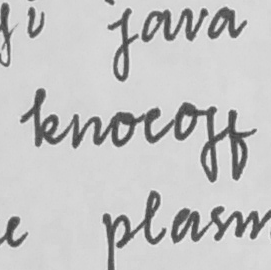 java
knocoff
plasm